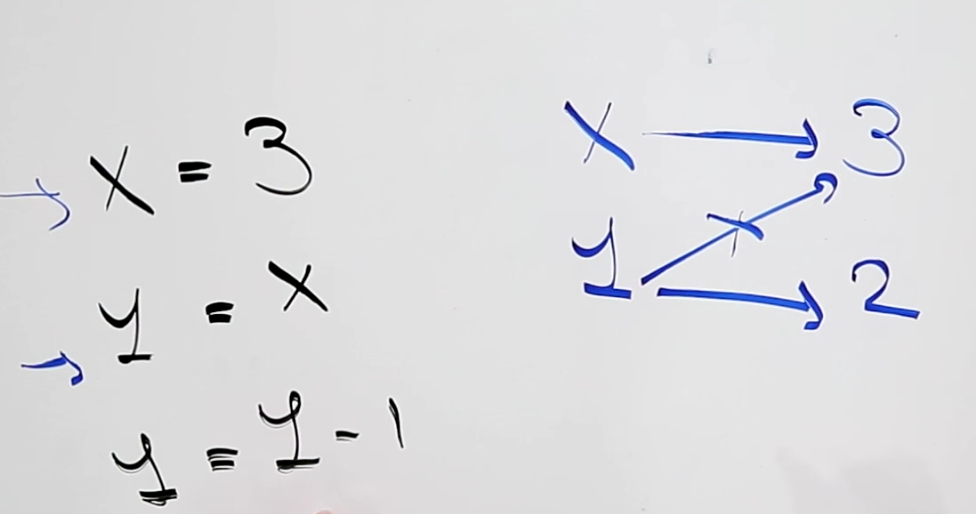 x = 3
y = x
y = y - 1
x → 3
y → 2